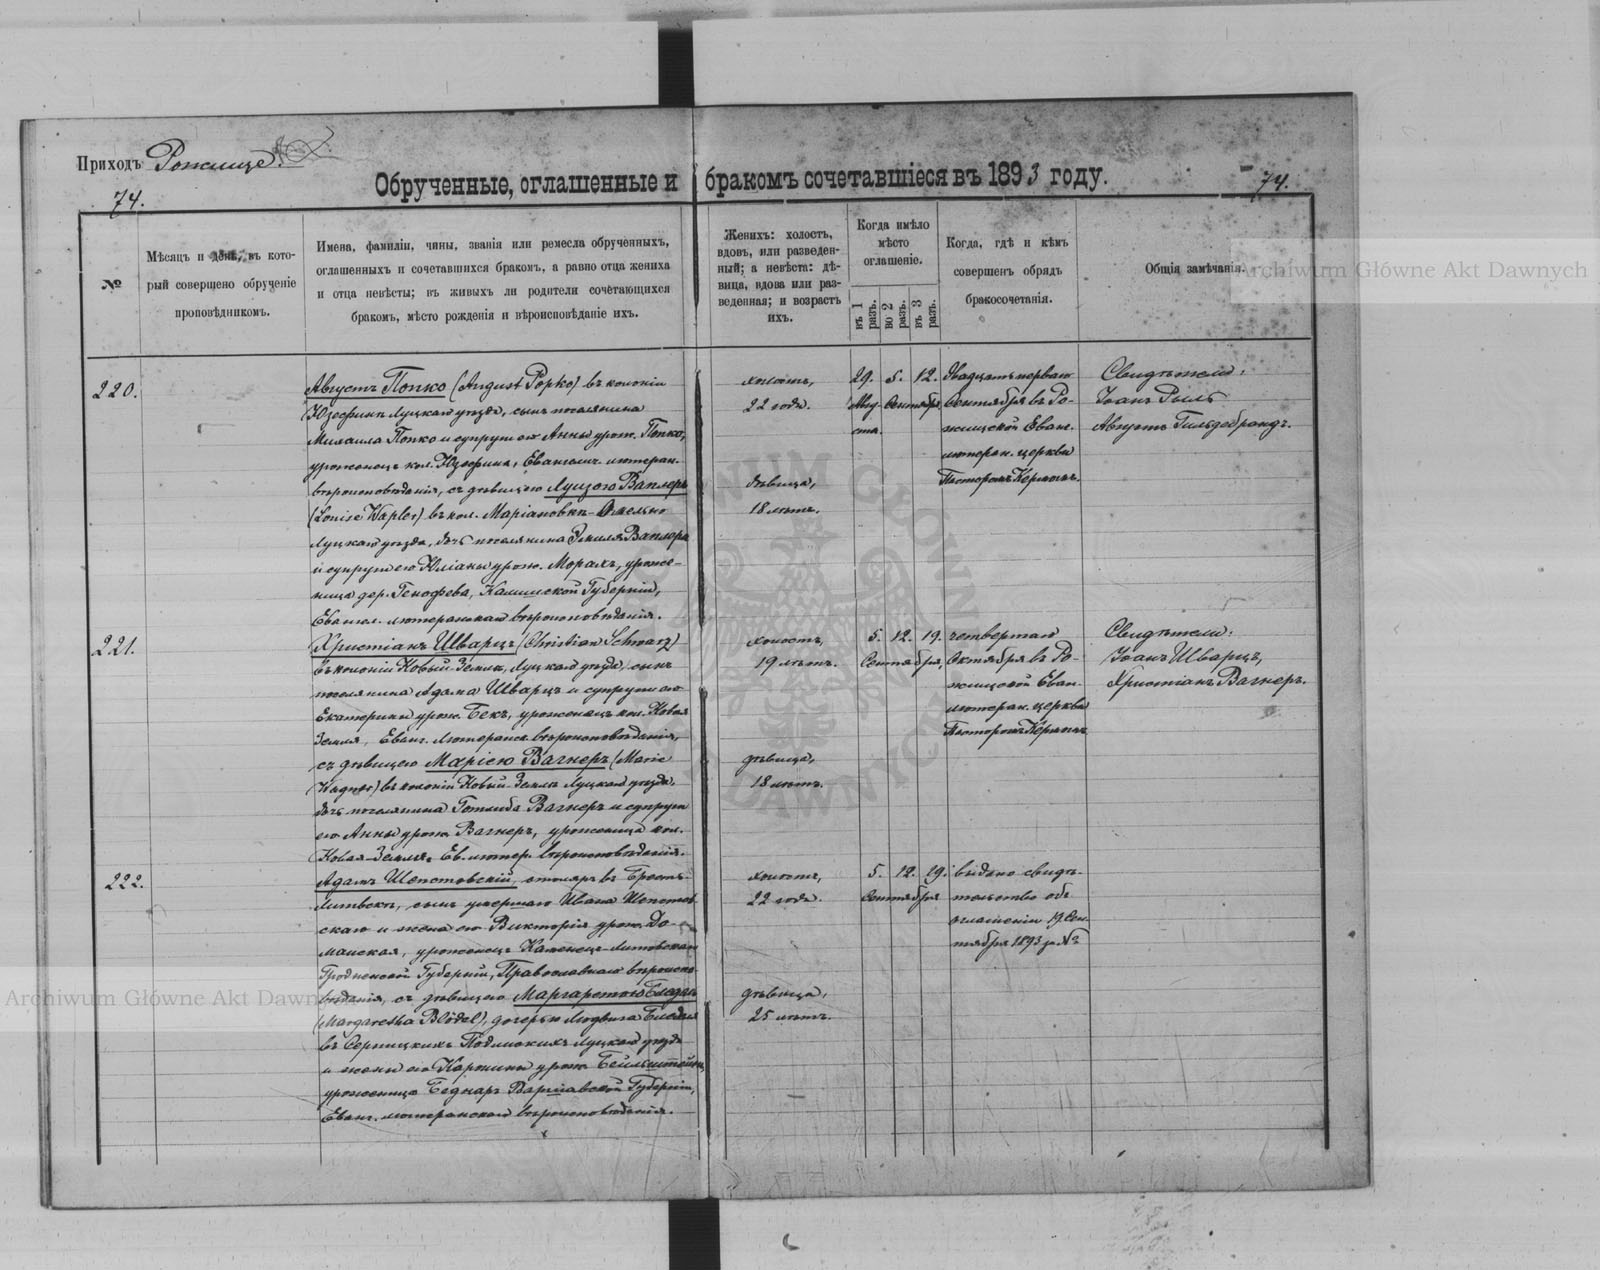 Приходъ Рожище.
74.
Обрученные, оглашенные и бракомъ сочетавшіеся въ 1893 году.
74.
№
Мѣсяцъ и день, въ кото-
рый совершено обрученіе
проповѣдникомъ.
Имена, фамиліи, чины, званія или ремесла обрученныхъ,
оглашенныхъ и сочетавшихся бракомъ, а равно отца жениха
и отца невѣсты; въ живыхъ ли родители сочетающихся
бракомъ, мѣсто рожденія и вѣроисповѣданіе ихъ.
Женихъ: холостъ,
вдовъ, или разведен-
ный; а невѣста: дѣ-
вица, вдова или раз-
веденная; и возрастъ
ихъ.
Когда имѣло
мѣсто
оглашеніе.
въ 1 разъ.
во 2 разъ.
въ 3 разъ.
Когда, гдѣ и кѣмъ
совершенъ обрядъ
бракосочетанія.
Общія замѣчанія.
Archiwum Główne Akt Dawnych
220.
Августъ Попко (August Popko) въ колоніи
Юзефинъ Луцкаго уѣзда, сынъ поселянина
Михаила Попко и супруги его Анны урож. Попко,
уроженецъ кол. Юзефина, Евангелич. лютеран.
вѣроисповѣданія, съ дѣвицею Луизою Ваплеръ
(Louise Wapler) въ кол. Маріановкѣ-Омельно
Луцкаго уѣзда, дочь поселянина Эмиля Ваплера
и супруги его Юліаны урож. Морахъ, уроже-
ница дер. Генофева, Калишской Губерніи,
Евангел. лютеранскаго вѣроисповѣданія.
холостъ,
22 года.
дѣвица,
18 лѣтъ.
29. 5. 12.
Авгу- Сентября
ста.
Двадцать перваго
Сентября въ Ро-
жищской Еванг.
лютеран. церкви
Пасторомъ Кермомъ.
Свидѣтели:
Іоганъ Рыль
Августъ Гильдебрандъ.
221.
Христіанъ Шварцъ (Christian Schwarz)
въ колоніи Новый-Земля, Луцкаго уѣзда, сынъ
поселянина Адама Шварцъ и супруги его
Екатерины урож. Бекъ, уроженецъ кол. Новая
Земля, Еванг. Лютеранск. вѣроисповѣданія,
съ дѣвицею Маріею Вагнеръ (Marie
Wagner) въ колоніи Новый-Земля Луцкаго уѣзда,
дочь поселянина Готлиба Вагнеръ и супруги
его Анны урож. Вагнеръ, уроженица кол.
Новая-Земля, Ев. лютер. вѣроисповѣданія.
холостъ,
19 лѣтъ.
дѣвица,
18 лѣтъ.
5. 12. 19.
Сентября,
четвертаго
Октября въ Ро-
жищской Еван.
лютеран. церкви
Пасторомъ Кермомъ.
Свидѣтели:
Іоганъ Шварцъ,
Христіанъ Вагнеръ.
222.
Адамъ Шепетовскій, столяръ въ Брестъ-
Литовскѣ, сынъ умершаго Ивана Шепетов-
скаго и жена его Викторія урож. До-
манская, уроженецъ Каменецъ-Литовскаго
Гродненской Губерніи, Православнаго вѣроиспо-
вѣданія, съ дѣвицею Маргаретою Бледель
(Margaretha Blödel), дочерью Людвига Бледеля
въ Серницкихъ Подлискихъ Луцкаго уѣзда
и жены его Каролины урож. Бейльштейнъ,
уроженица Беднаръ Варшавской Губерніи,
Еванг. лютеранскаго вѣроисповѣданія.
холостъ,
22 года.
дѣвица,
25 лѣтъ.
5. 12. 19.
Сентября
выдано свидѣ-
тельство объ
оглашеніи 19 Сен-
тября 1893 за №
Archiwum Główne Akt Dawnych